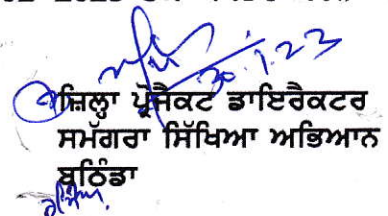 30.1.23
ਜ਼ਿਲ੍ਹਾ ਪ੍ਰੋਜੈਕਟ ਡਾਇਰੈਕਟਰ
ਸਮੱਗਰਾ ਸਿੱਖਿਆ ਅਭਿਆਨ
ਬਠਿੰਡਾ